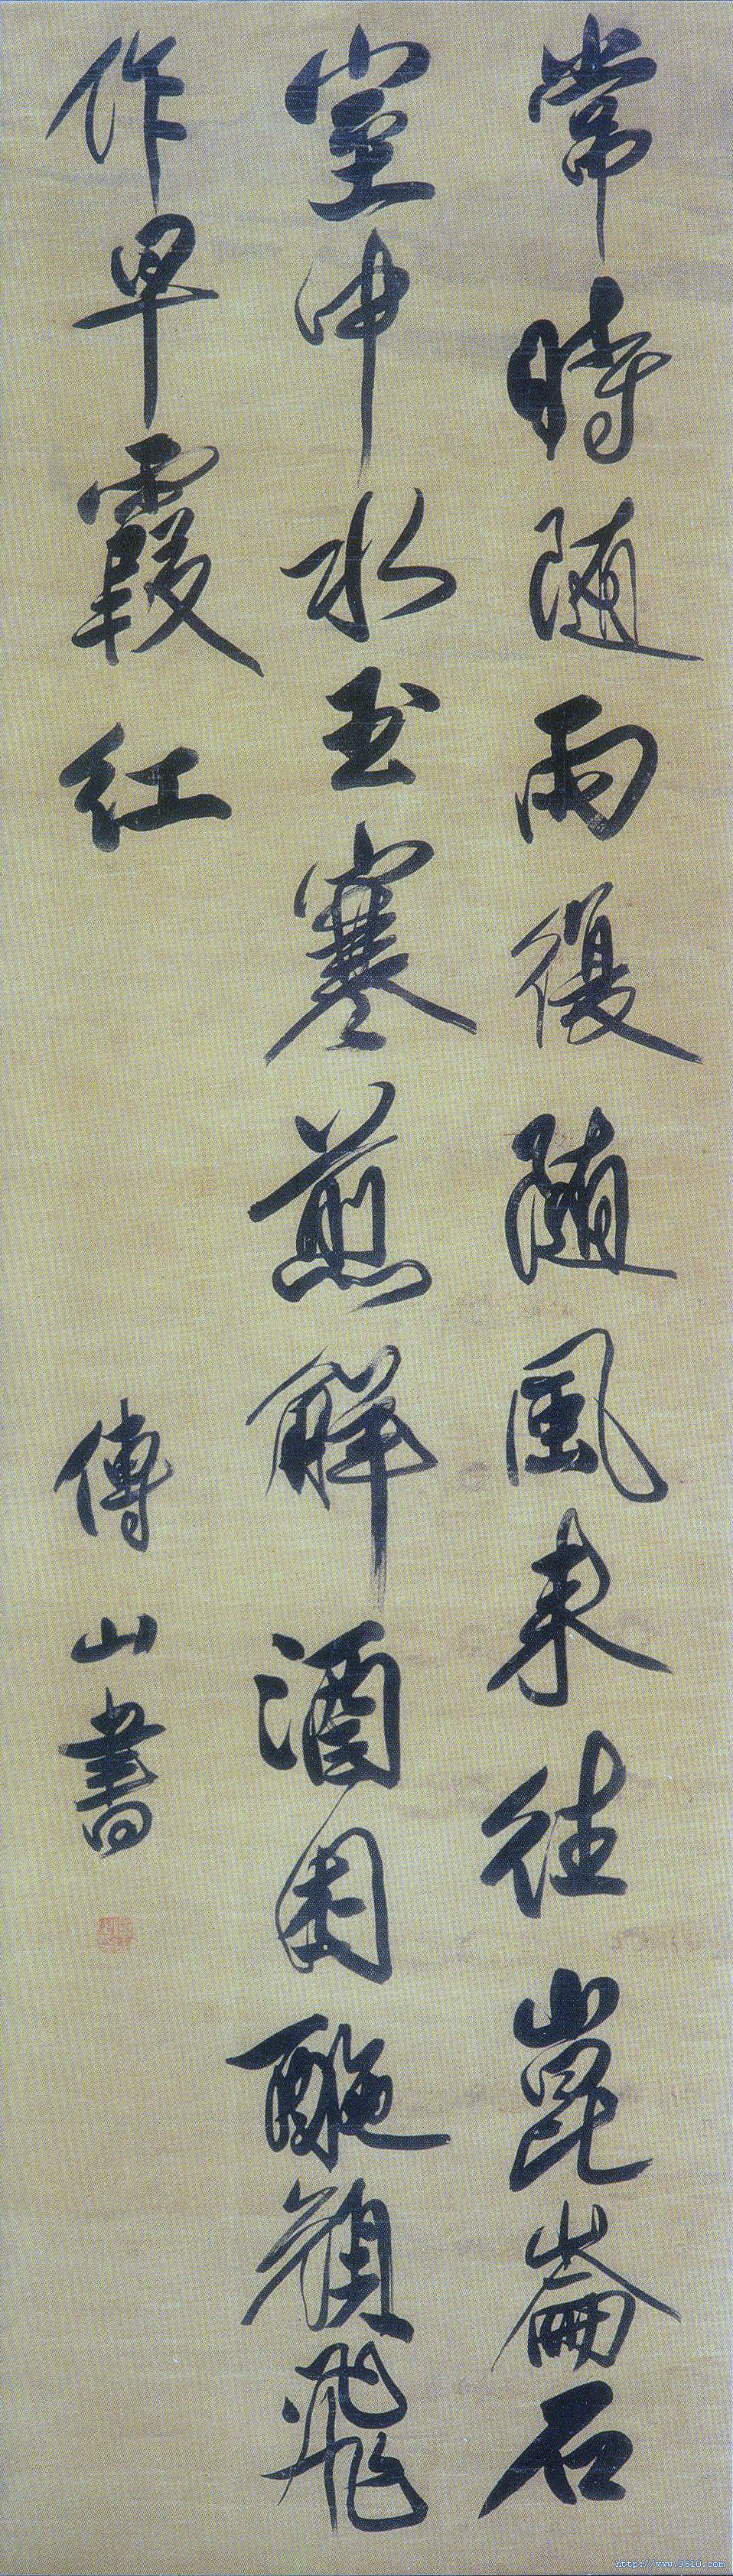 常時隨雨復隨風來往崑崙石
室中水玉寒煎解酒困酡顏飛
作早霞紅
傅山書
http://www.9610.com